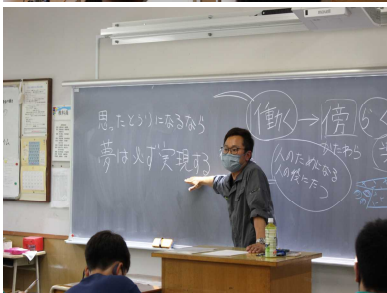 思ったとうりになるなら
夢は必ず実現する
働く→傍らく
かたわら
人のためになる
人の役にたつ